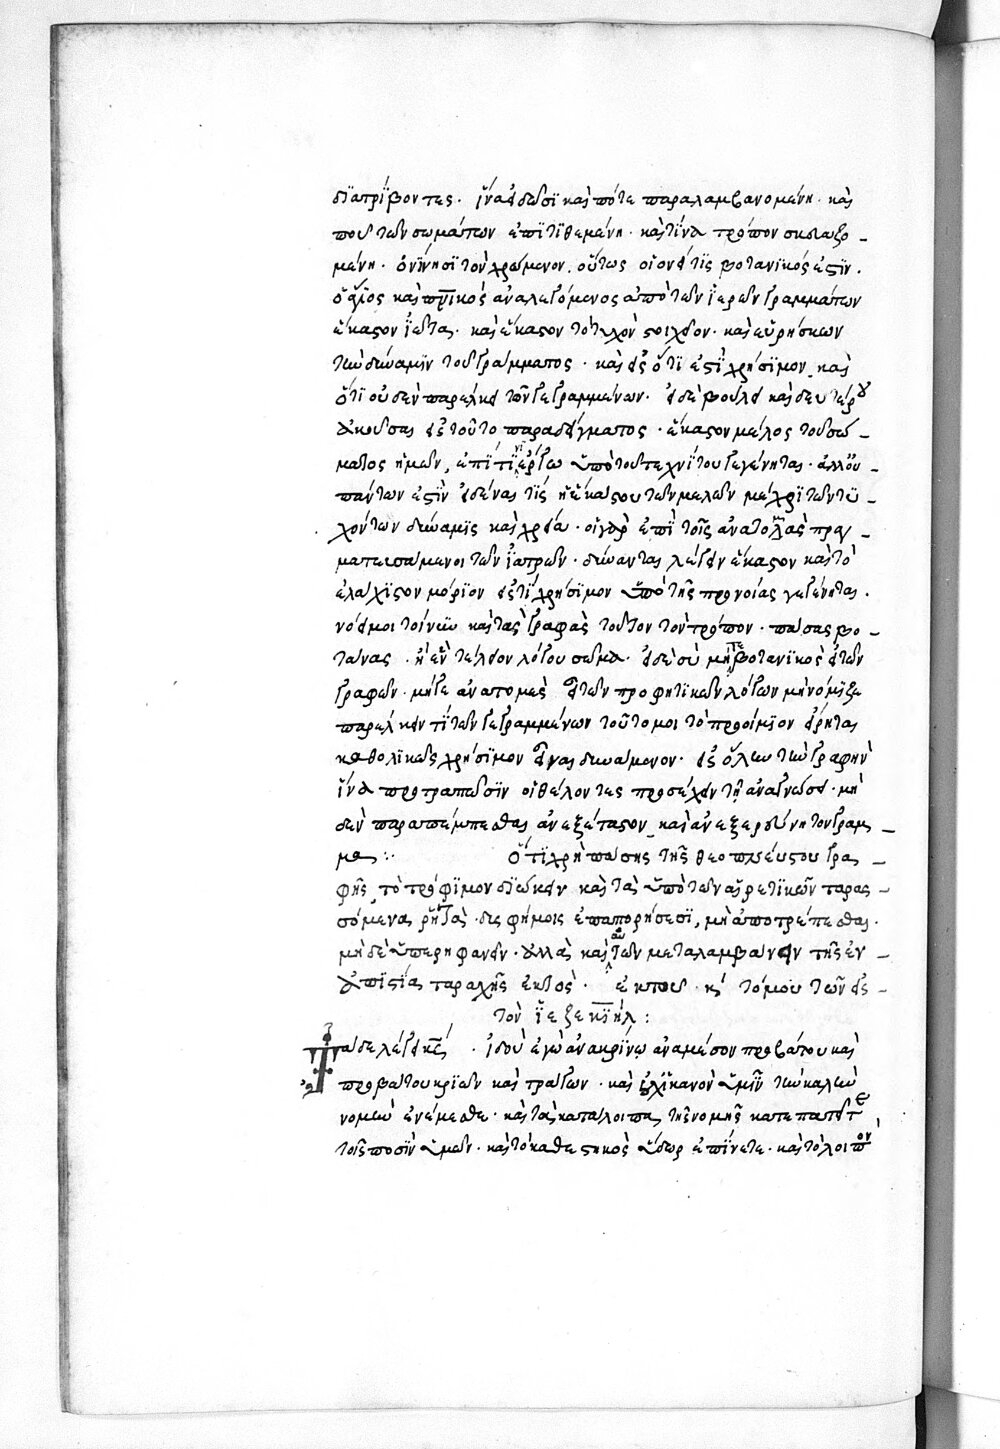 διατρίβοντες. ἵνα εἰδῶσι καὶ πότε παραλαμβανομένη. καὶ
ποῦ τῶν σωμάτων ἐπιτιθεμένη. καὶ τίνα τρόπον σκευαζο-
μένη. ὀνίνησι τὸν χρώμενον. οὕτως οἱονεί τις βοτανικός ἐστιν.
ὁ ἅγιος καὶ πνικὸς ἀναλεγόμενος ἀπὸ τῶν ἱερῶν γραμμάτων
ἕκαστον ἰῶτα. καὶ ἕκαστον τὸ τυχὸν στοιχεῖον. καὶ εὑρήσκων
τὴν δύναμιν τοῦ γράμματος. καὶ εἰς ὅτι ἐστὶ χρήσιμον. καὶ
ὅτι οὐδὲν παρέλκει τῶν γεγραμμένων. εἰ δὲ βούλει καὶ δευτέρου
ἀκοῦσαι εἰς τοῦτο παραδείγματος. ἕκαστον μέλος τοῦ σώ-
ματος ἡμῶν, ἐπί τι ἔργω ὑπὸ τοῦ τεχνίτου γεγένηται. ἀλλ' οὐ-
πάντων ἐστὶν εἰδέναι τίς ἡ ἑκάστου τῶν μελῶν μέχρι τῶν τυ-
χόντων δύναμις καὶ χρεία. οἱ γὰρ ἐπὶ τοῖς ἀνατολὰς πραγ-
ματευσάμενοι τῶν ἰατρῶν. δύνανται λέγειν ἕκαστον καὶ τὸ
ἐλάχιστον μόριον εἰς τί χρήσιμον ὑπὸ τῆς προνοίας γεγένηται.
νόει μοι τοίνυν καὶ τὰς γραφὰς τοῦτον τὸν τρόπον. πάσας βο-
τάνας. ἢ ἓν τέλειον λόγου σῶμα. εἰ δὲ σὺ μήτε βοτανικὸς εἶ τῶν
γραφῶν. μήτε ἀνατομεὺς εἶ τῶν προφητικῶν λόγων μὴ νόμιζε
παρέλκειν τὶ τῶν γεγραμμένων τοῦτο μοι τὸ προοίμιον εἴρηται
καθολικῶς χρήσιμον εἶναι δυνάμενον. εἰς ὅλην τὴν γραφὴν
ἵνα προτραπῶσιν οἱ θέλοντες προσέχειν τῇ ἀναγνώσει. μη
δὲν παραπέμπεσθαι ἀνεξέταστον καὶ ἀνεξερεύνητον γράμ-
μα: Ὅτι χρὴ πάσης τῆς θεοπνεύστου γρα-
φῆς τὸ τρόφιμον διώκειν καὶ τὰ ὑπὸ τῶν αἱρετικῶν ταρασ-
σόμενα ῥητὰ. δυσφήμοις ἐπαπορήσεσι, μὴ ἀποτρέπεσθαι.
μὴ δὲ ὑπερηφανεῖν. ἀλλὰ καὶ αὐτῶν μεταλαμβάνειν τῆς ἐν-
ἀπιστία ταραχῆς ἐκτὸς. ἐκ τοῦ κ' τόμου τῶν εἰς-
τὸν ἰεζεκιήλ:
Τάδε λέγει κς. ἰδοὺ ἐγὼ ἀνακρίνω ἀναμέσον προβάτου καὶ
προβάτου κριῶν καὶ τράγων. καὶ οὐχ ἱκανὸν ὑμῖν τὴν καλὴν
νομὴν ἐνέμεσθε. καὶ τὰ κατάλοιπα τῆς νομῆς κατεπατεῖτε
τοῖς ποσὶν ὑμῶν. καὶ τὸ καθεστηκὸς ὕδωρ ἐπίνετε. καὶ τὸ λοιπὸν